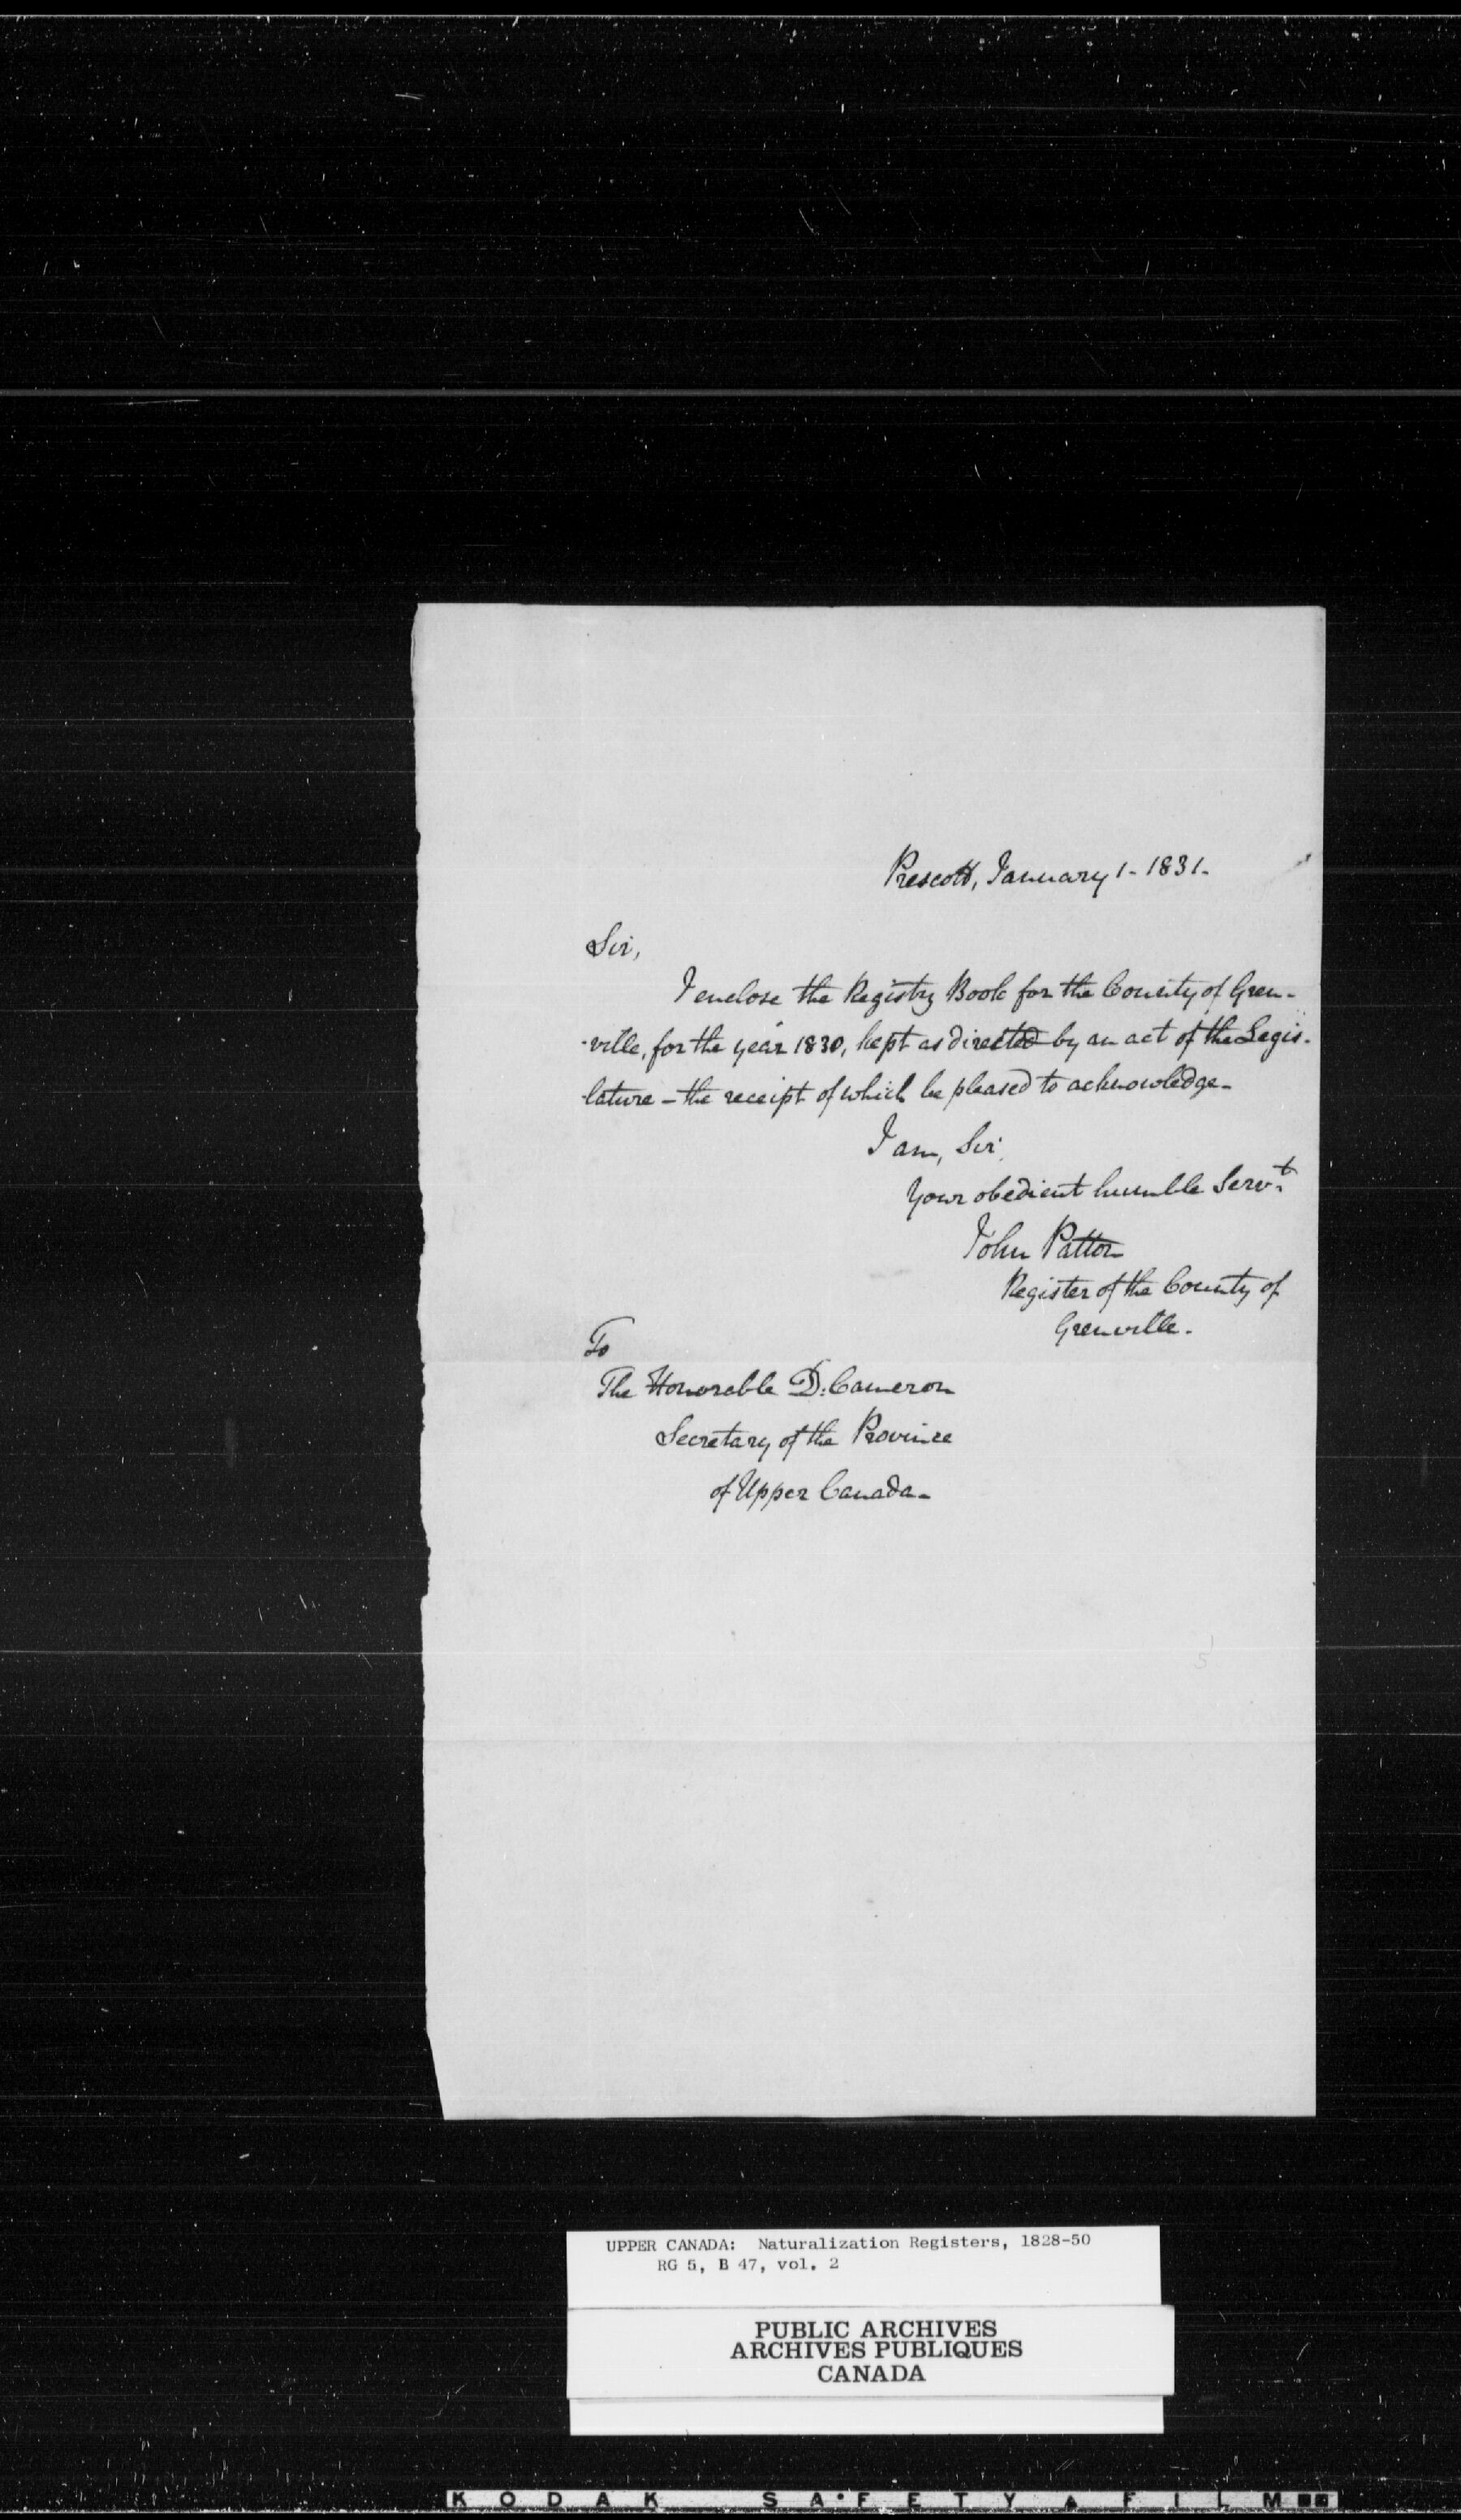 Prescott, January 1- 1831-
Sir,
I enclose the Registry Book for the County of Gren-
-ville, for the year 1830, kept as directed by an act of the Legis-
-lature - the receipt of which be pleased to acknowledge-
I am, Sir,
Your obedient humble Servt.
John Patton
Register of the County of
Grenville.
To
The Honorable D. Cameron
Secretary of the Province
of Upper Canada-
5
UPPER CANADA: Naturalization Registers, 1828-50
RG 5, B 47, vol. 2
PUBLIC ARCHIVES
ARCHIVES PUBLIQUES
CANADA
KODAK SAFETY FILM